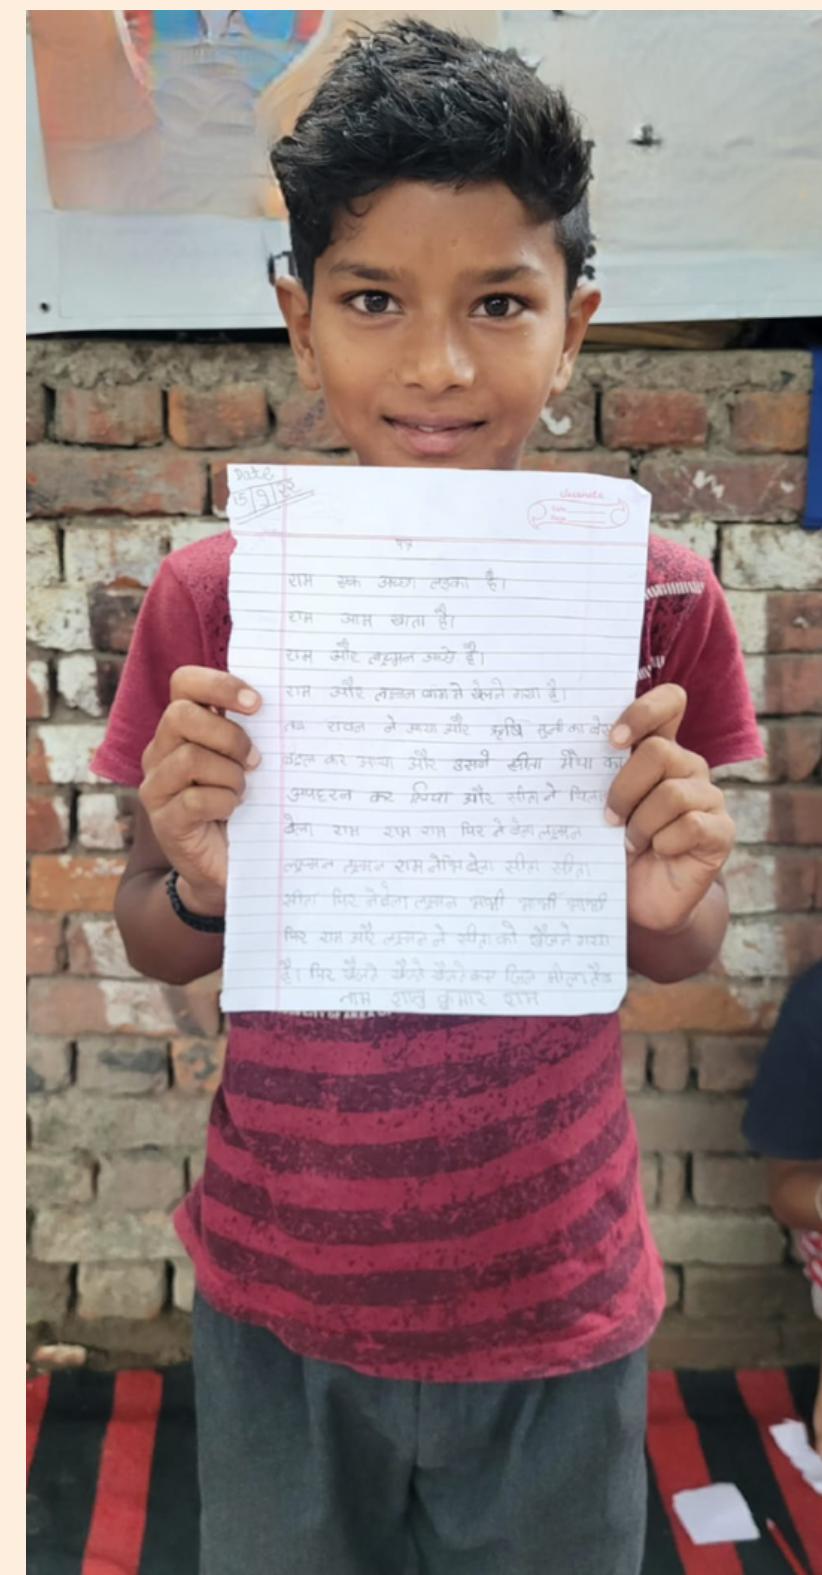 Date
15/9/23
Date
Page
राम एक अच्छा लड़का है।
राम आम खाता है।
राम और लक्ष्मन अच्छे है।
राम और लक्ष्मन में खेलने गया है।
रावन ने आया और ऋषि का
बदल कर आया और उसने सीता मैया का
अपहरन कर लिया और सीता ने
बोला राम राम राम फिर ने बोला लक्ष्मन
लक्ष्मन लक्ष्मन राम ने बोला सीता सीता
सीता फिर ने बोला लक्ष्मन भाभी भाभी भाभी
फिर राम और लक्ष्मन ने सीता को खोजने गया
है। फिर खोजते खोजते खोजते
नाम कुमार राम